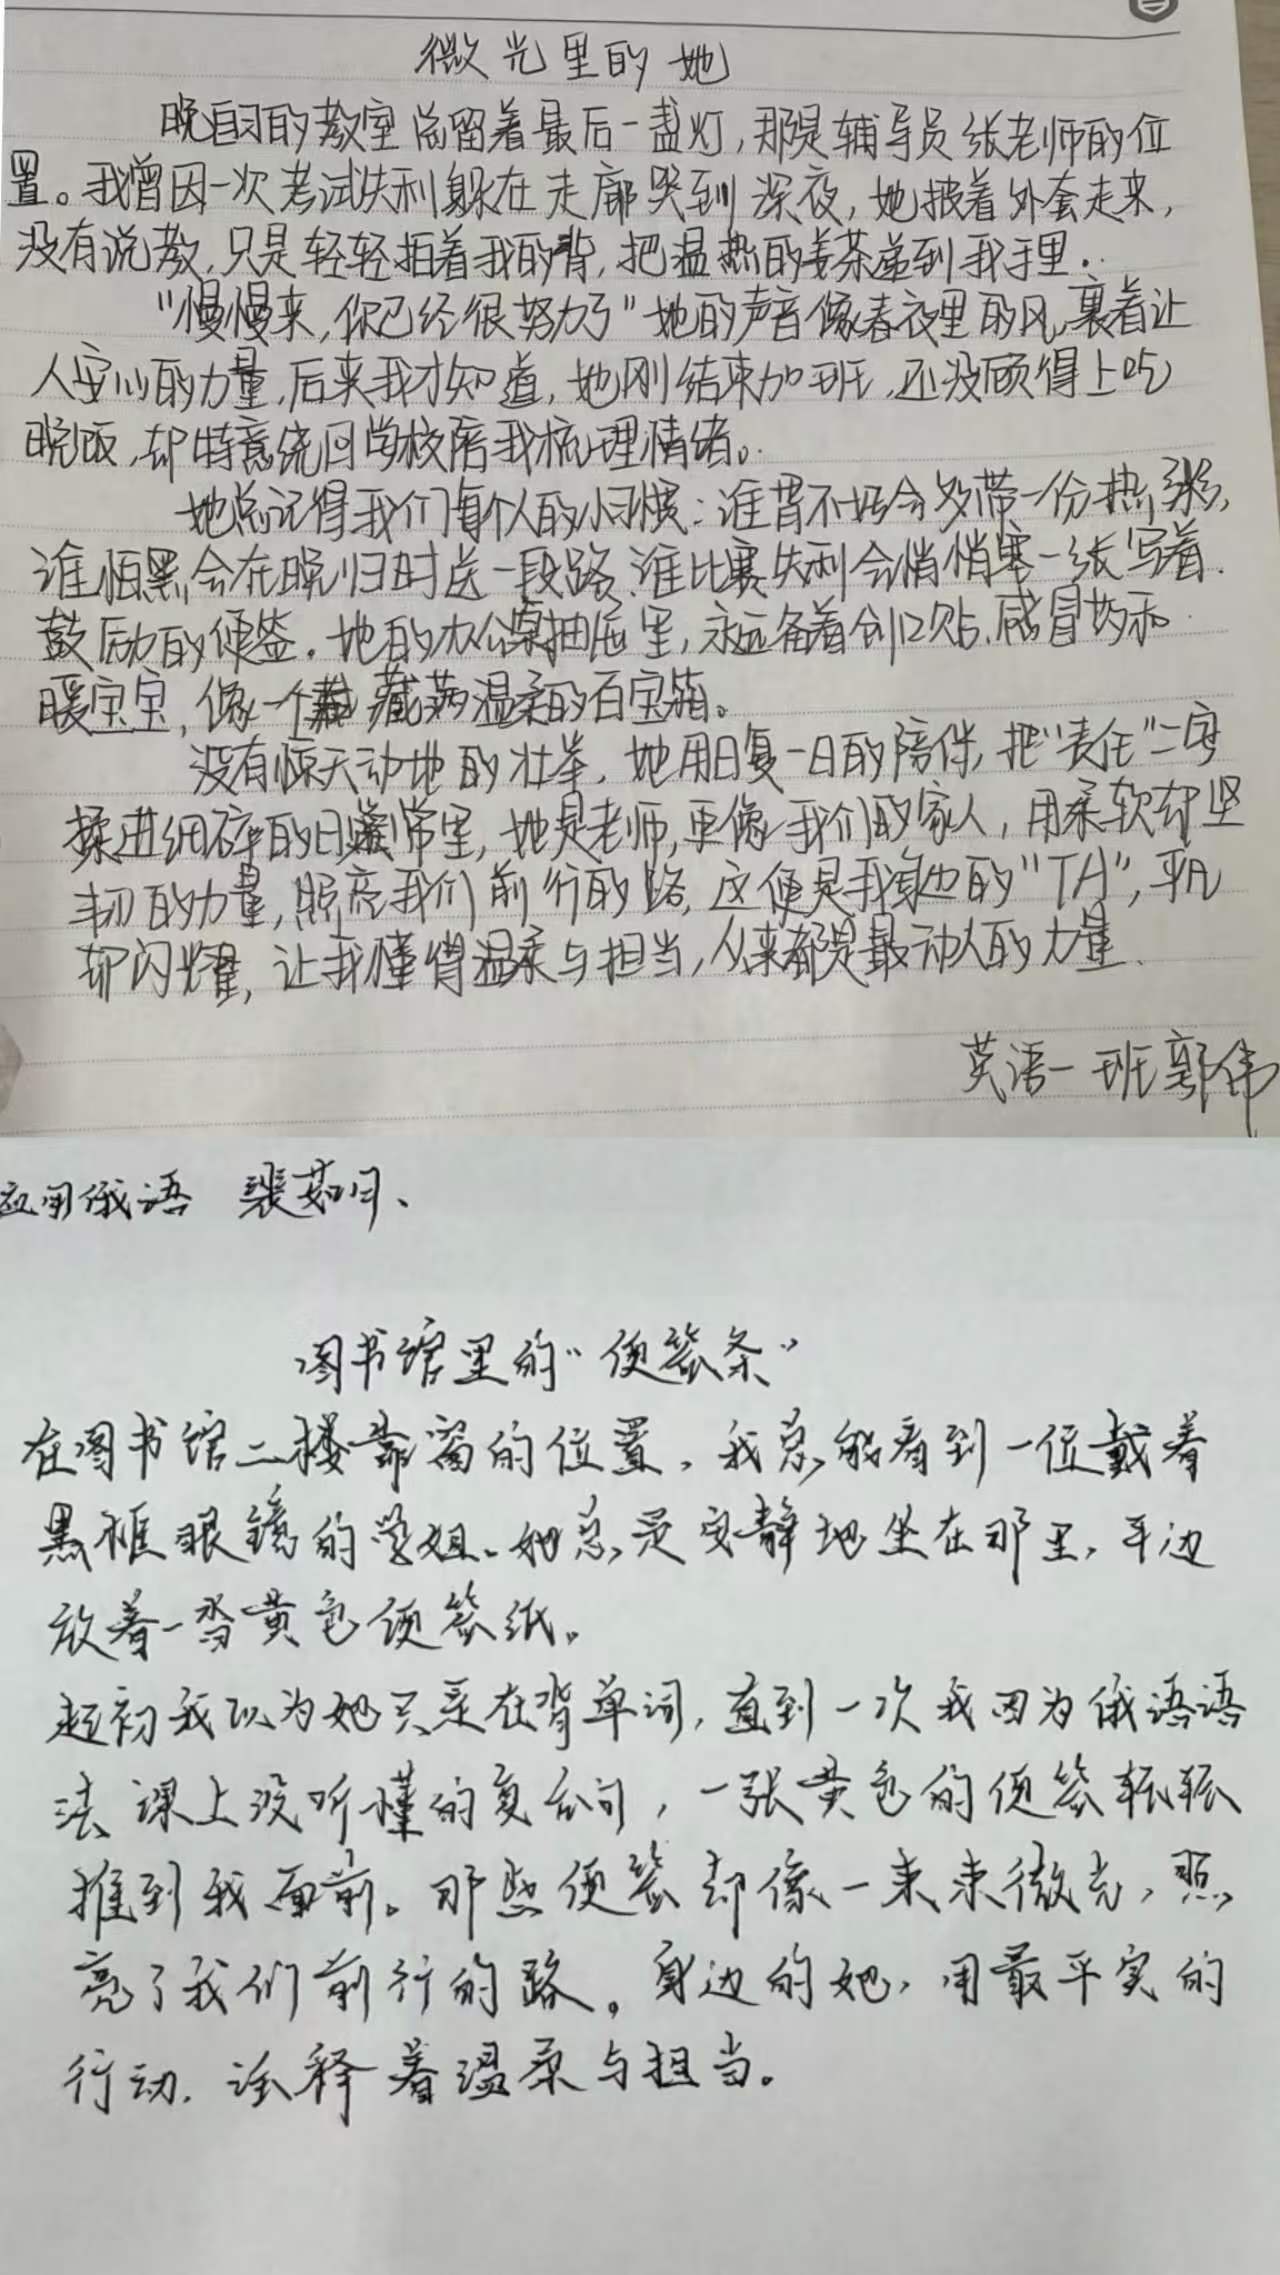 微光里的她
晚自习的教室总留着最后一盏灯,那是辅导员张老师的位
置。我曾因一次考试失利躲在走廊哭到深夜,她披着外套走来,
没有说教,只是轻轻拍着我的背,把温热的姜茶递到我手里.
“慢慢来,你已经很努力了”她的声音像春夜里的风,裹着让
人安心的力量,后来我才知道,她刚结束加班,还没顾得上吃
晚饭,却特意绕回学校陪我梳理情绪。
她总记得我们每个人的小习惯:谁胃不好会多带一份热粥,
谁怕黑会在晚归时送一段路、谁比赛失利会悄悄塞一张写着
鼓励的便签.她的办公桌抽屉里,永远备着创口贴、感冒药和
暖宝宝,像一个藏满温柔的百宝箱。
没有惊天动地的壮举,她用日复一日的陪伴,把“责任”二字
揉进细碎的日常里,她是老师,更像我们的家人,用柔软却坚
韧的力量,照亮我们前行的路,这便是我身边的“TA”,平凡
却闪耀,让我懂得温柔与担当,从来都是最动人的力量.
英语一班郭伟
应用俄语 裴茹月、
图书馆里的“便签条”
在图书馆二楼靠窗的位置,我总能看到一位戴着
黑框眼镜的学姐、她总是安静地坐在那里,手边
放着一沓黄色便签纸。
起初我以为她只是在背单词,直到一次我因为俄语语
法课上没听懂的复合句,一张黄色的便签轻轻
推到我面前。那些便签却像一束束微光,照
亮了我们前行的路。身边的她,用最平实的
行动.诠释着温柔与担当。